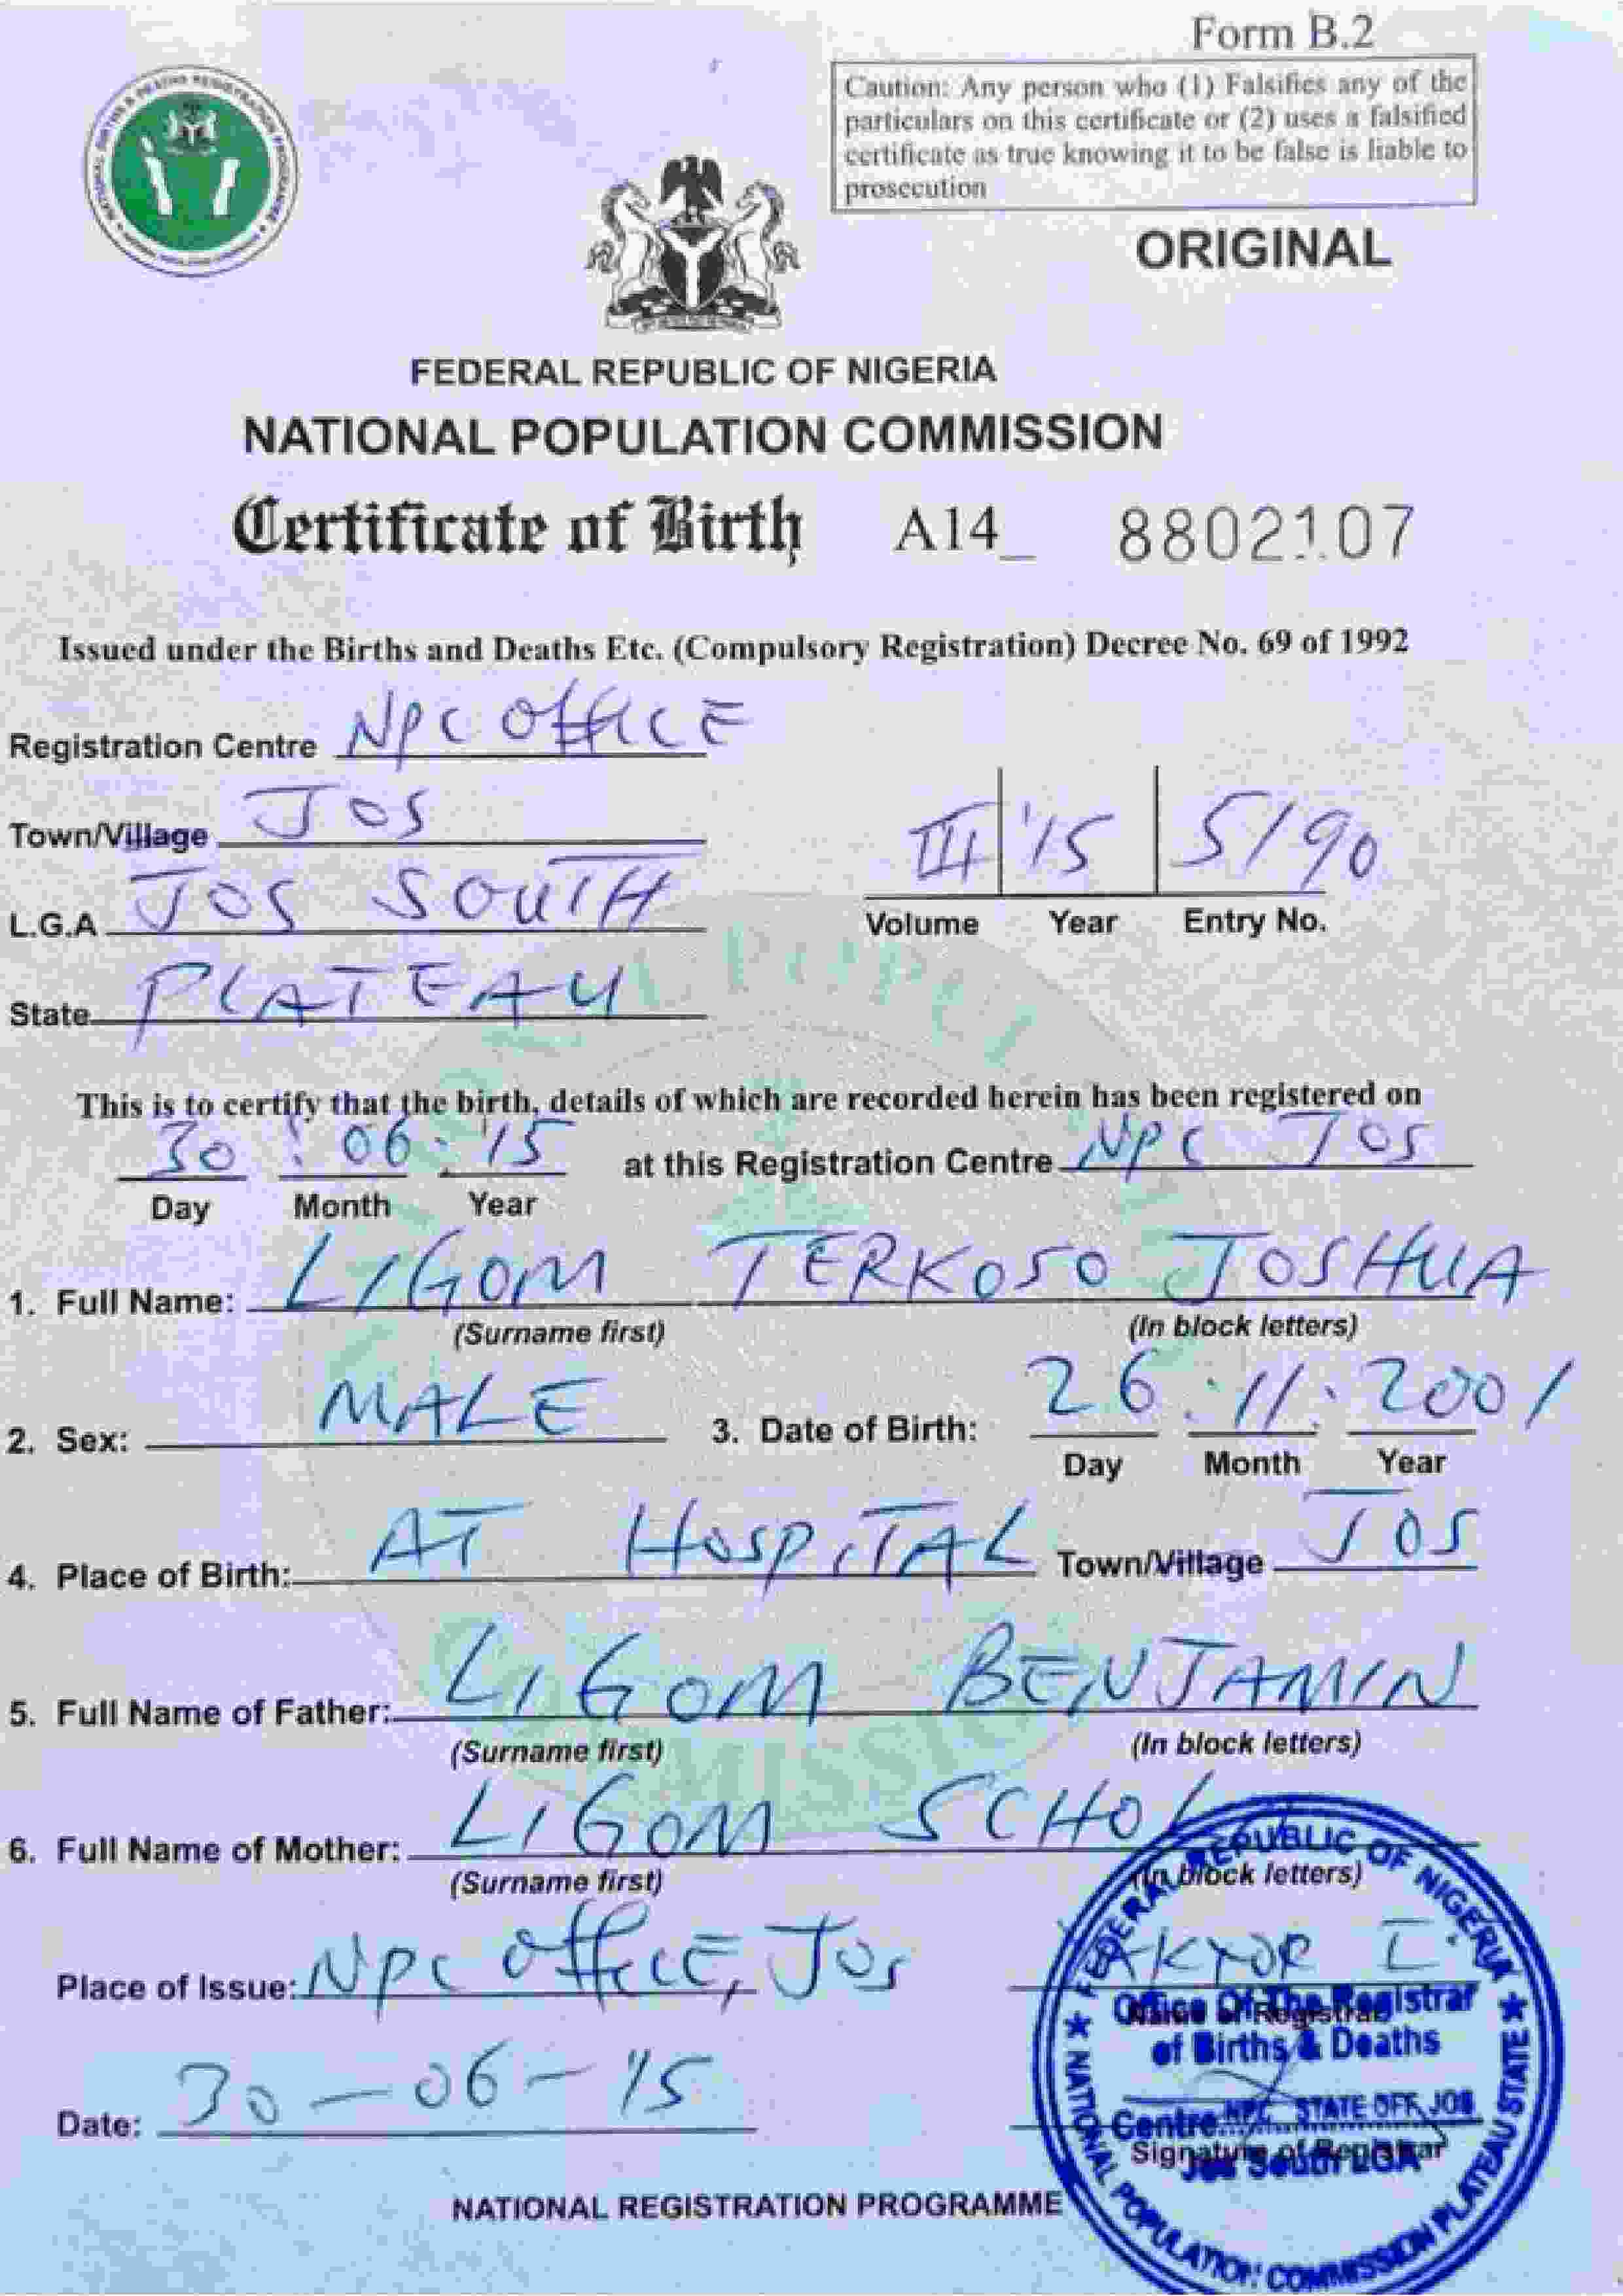 Form B.2
Caution: Any person who (1) Falsifies any of the
particulars on this certificate or (2) uses a falsified
certificate as true knowing it to be false is liable to
prosecution
ORIGINAL
FEDERAL REPUBLIC OF NIGERIA
NATIONAL POPULATION COMMISSION
Certificate of Birth A14_ 8802107
Issued under the Births and Deaths Etc. (Compulsory Registration) Decree No. 69 of 1992
Registration Centre NPC OFFICE
Town/Village JOS
L.G.A JOS SOUTH
State PLATEAU
III '15 5/90
Volume Year Entry No.
This is to certify that the birth, details of which are recorded herein has been registered on
30 : 06 : '15 at this Registration Centre NPC JOS
Day Month Year
1. Full Name: LIGOM TERKOSO JOSHUA
(Surname first) (In block letters)
2. Sex: MALE 3. Date of Birth: 26 . 11 . 2001
Day Month Year
4. Place of Birth: AT HOSPITAL Town/Village JOS
5. Full Name of Father: LIGOM BENJAMIN
(Surname first) (In block letters)
6. Full Name of Mother: LIGOM
(Surname first) (In block letters)
Place of Issue: NPC OFFICE, JOS
Name of Registrar
Date: 30-06-'15
Signature of Registrar
FEDERAL REPUBLIC OF NIGERIA
Office Of The Registrar
of Births & Deaths
Centre NPC STATE OFF. JOS
Jos South LGA
NATIONAL POPULATION COMMISSION PLATEAU STATE
NATIONAL REGISTRATION PROGRAMME